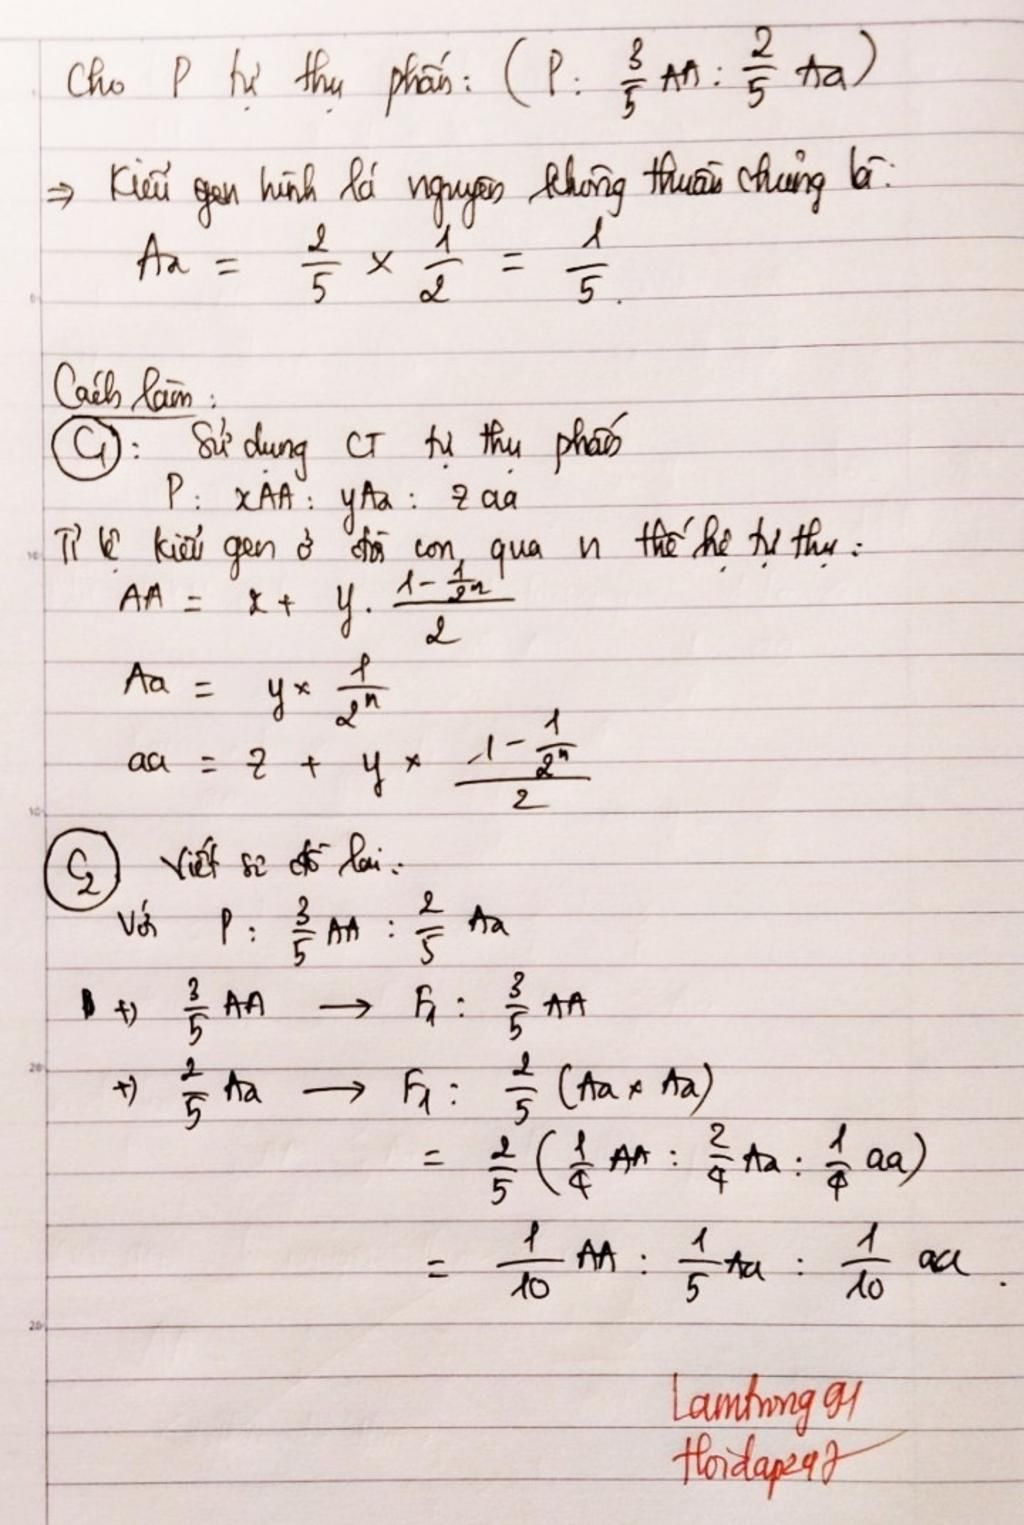 Cho P tự thụ phấn: (P: 3/5 AA : 2/5 Aa)
⇒ Kiểu gen hình lá nguyên không thuần chủng là:
Aa = 2/5 × 1/2 = 1/5.
Cách làm:
C1: Sử dụng CT tự thụ phấn
P: xAA : yAa : zaa
Tỉ lệ kiểu gen ở đời con qua n thế hệ tự thụ:
AA = x + y. (1 - 1/2ⁿ)/2
Aa = y × 1/2ⁿ
aa = z + y × (1 - 1/2ⁿ)/2
C2 Viết sơ đồ lai:
Với P: 3/5 AA : 2/5 Aa
+) 3/5 AA → F1: 3/5 AA
+) 2/5 Aa → F1: 2/5 (Aa × Aa)
= 2/5 (1/4 AA : 2/4 Aa : 1/4 aa)
= 1/10 AA : 1/5 Aa : 1/10 aa.
Lamhong91
Hoidap247